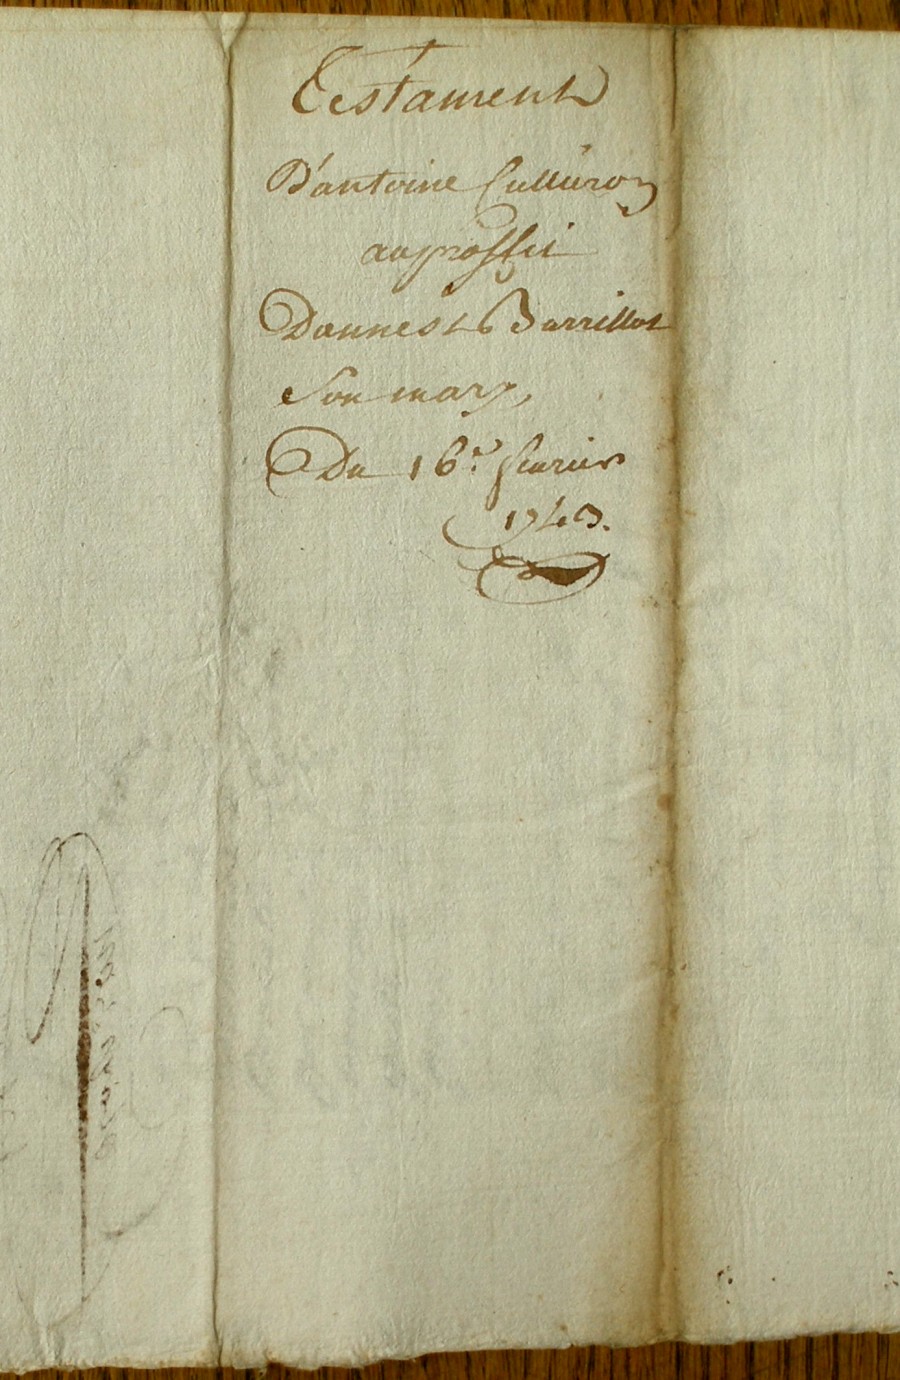 Testament
D'antoine Culluron
auproffit
Dannest Barrillot
Son mary,
Du 16.e feurier
1743.